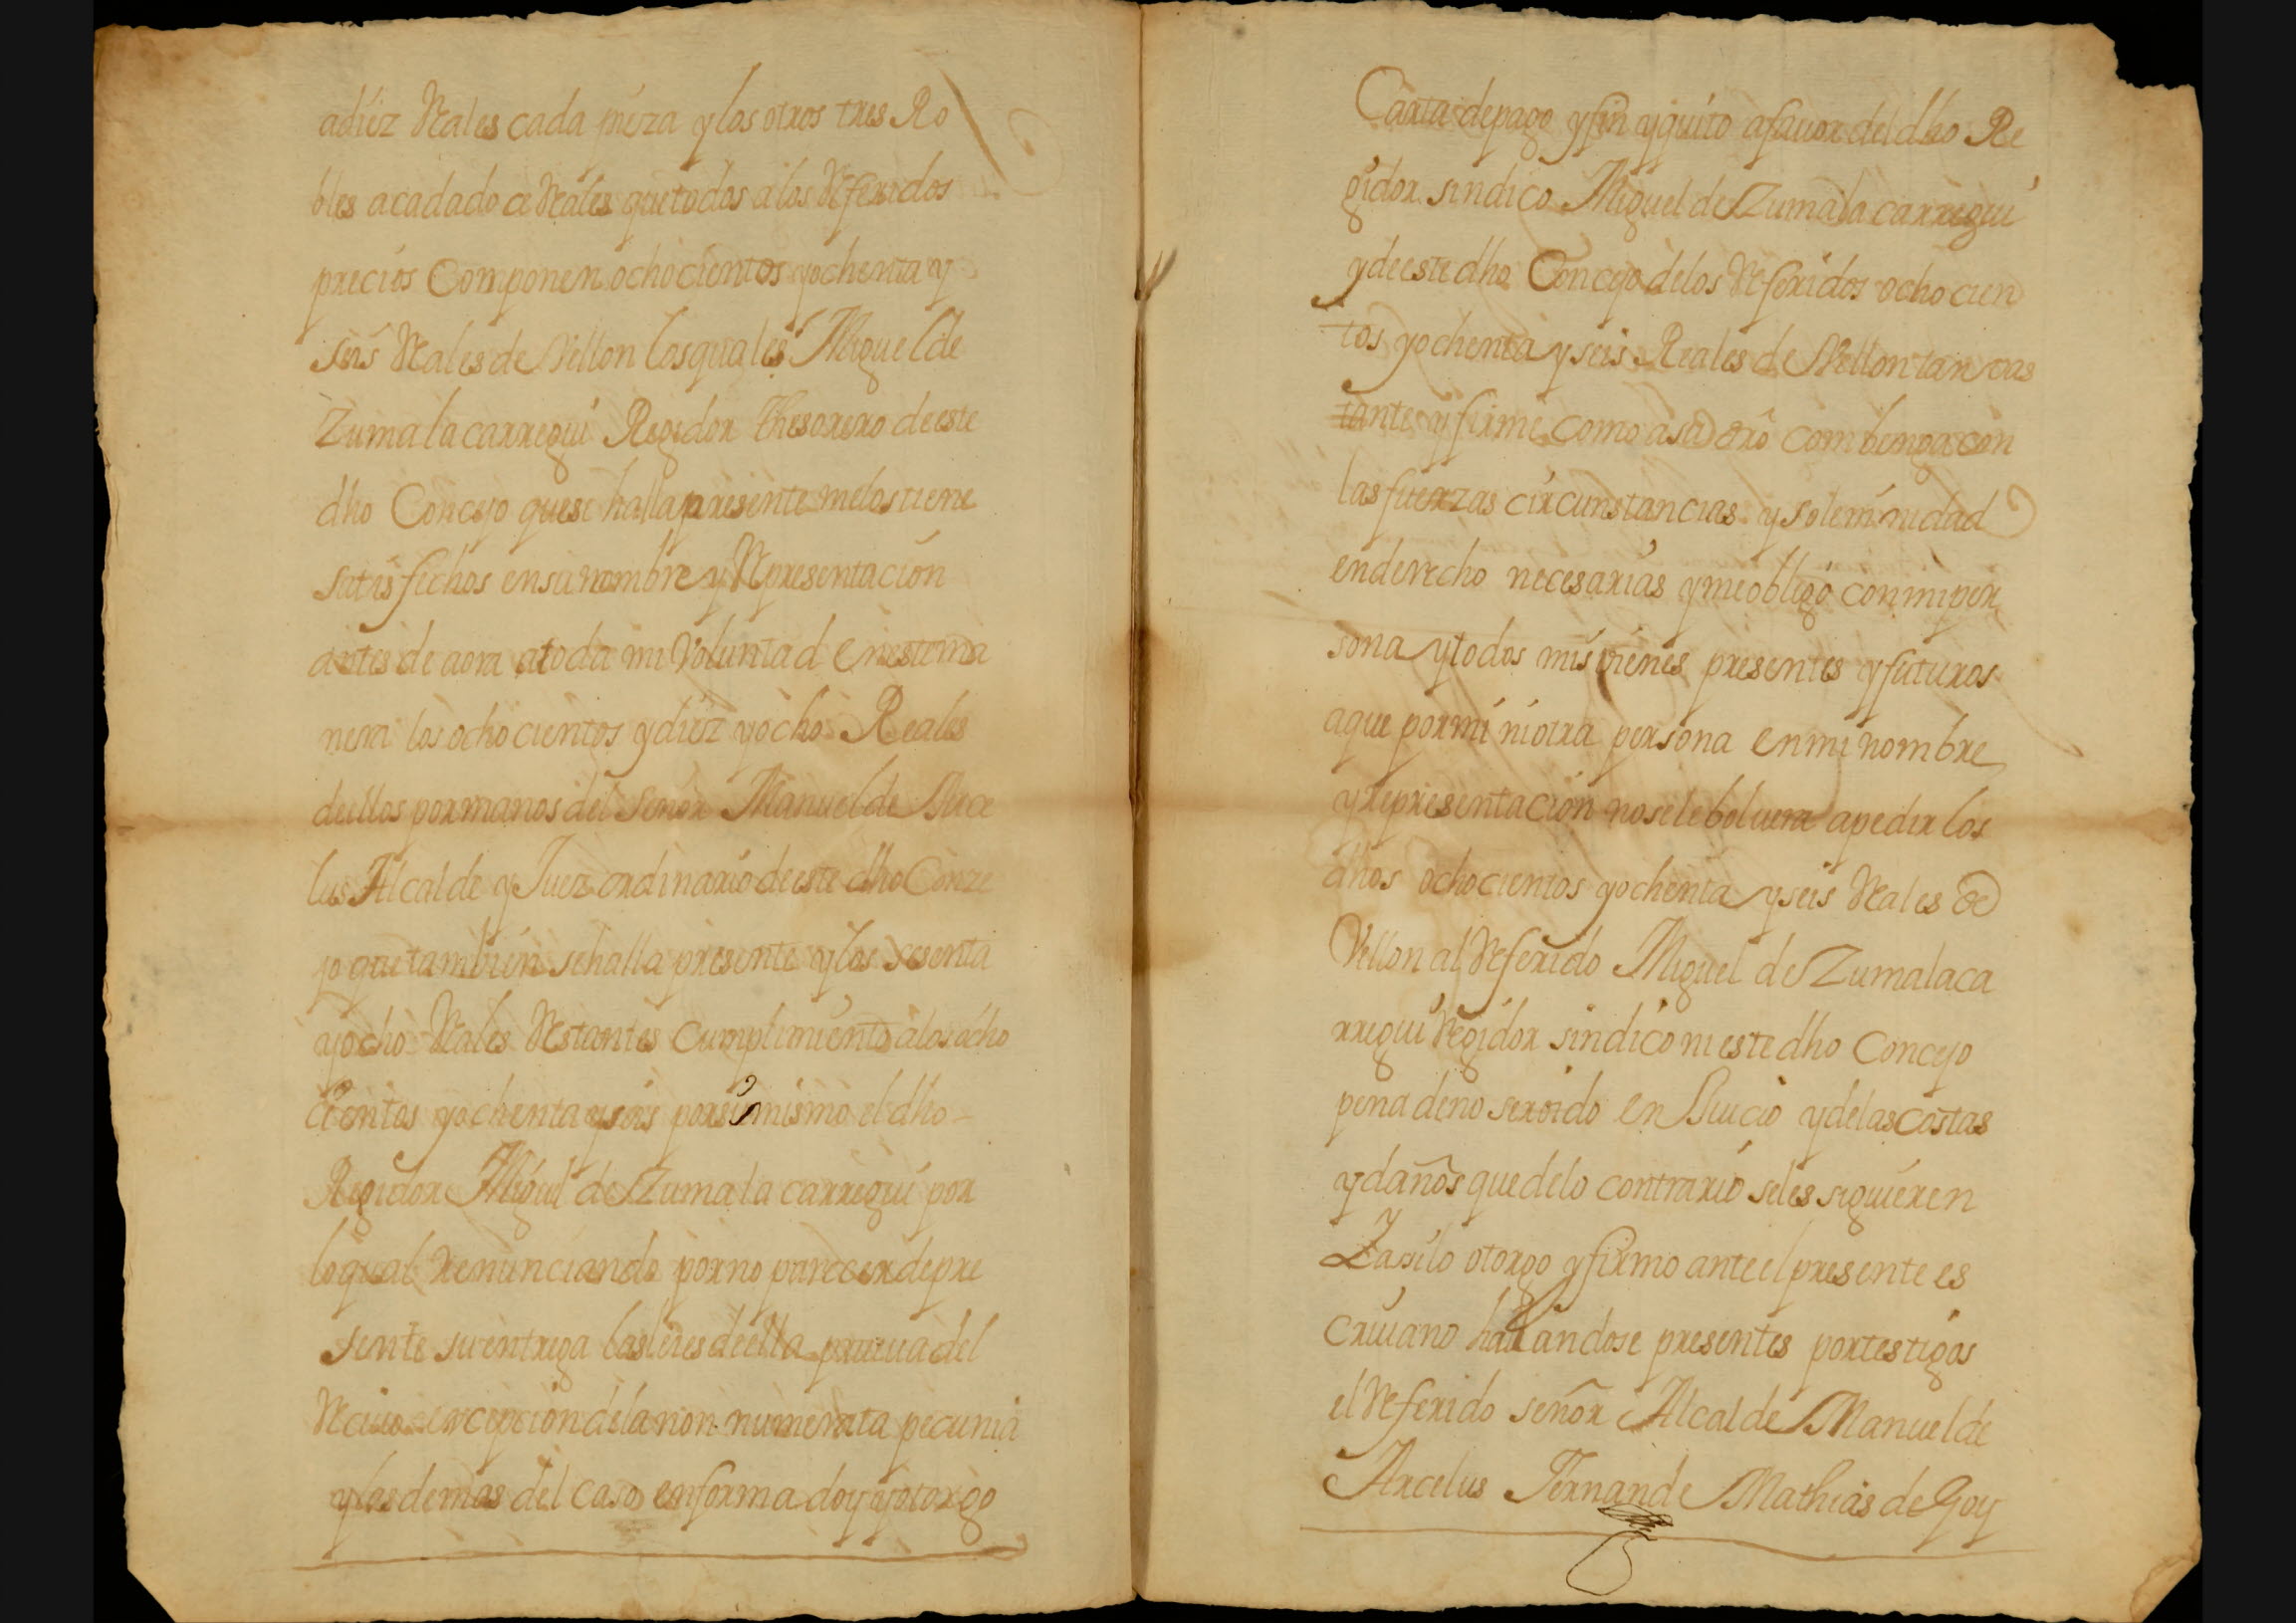 adiez Reales cada pieza y los otros tres Ro
bles acadado ce Reales que todos a los Referidos
precios Componen ochocientos y ochenta y
seis Reales de Vellon los quales Miguel de
Zumalacarregui Regidor thesorero de este
dho Concejo que se halla presente me los tiene
satisfechos en su nombre y Representacion
antes de aora a toda mi Voluntad en esta ma
nera los ochocientos y diez y ocho Reales
de ellos por manos del Señor Manuel de Arce
lus Alcalde y Juez ordinario de este dho Conze
jo que tambien se halla presente y los sesenta
y ocho Reales Restantes cumplimiento a los ocho
cientos y ochenta y seis por si mismo el dho
Regidor Miguel de Zumalacarregui por
lo qual renunciando por no parecer de pre
sente su entrega las leies de ella prueua del
Reciuo excepcion de la non numerata pecunia
y las demas del caso en forma doy y otorgo
Carta de pago y fin y quito a fauor del dho Re
gidor sindico Miguel de Zumalacarregui
y de este dho Concejo de los Referidos ochocien
tos y ochenta y seis Reales de Vellon tan vas
tante y firme como a su dro combenga con
las fuerzas circunstancias y solemnidad
en derecho necesarias y me obligo con mi per
sona y todos mis vienes presentes y futuros
a que por mi ni otra persona en mi nombre
y representacion no se le boluera a pedir los
dhos ochocientos y ochenta y seis Reales de
Vellon al Referido Miguel de Zumalaca
rregui Regidor sindico ni este dho Concejo
pena de no ser oido en Juicio y de las costas
y daños que de lo contrario se les siguieren
Y assi lo otorgo y firmo ante el presente es
criuano hallandose presentes por testigos
el Referido señor Alcalde Manuel de
Arcelus Fernando Mathias de Goy